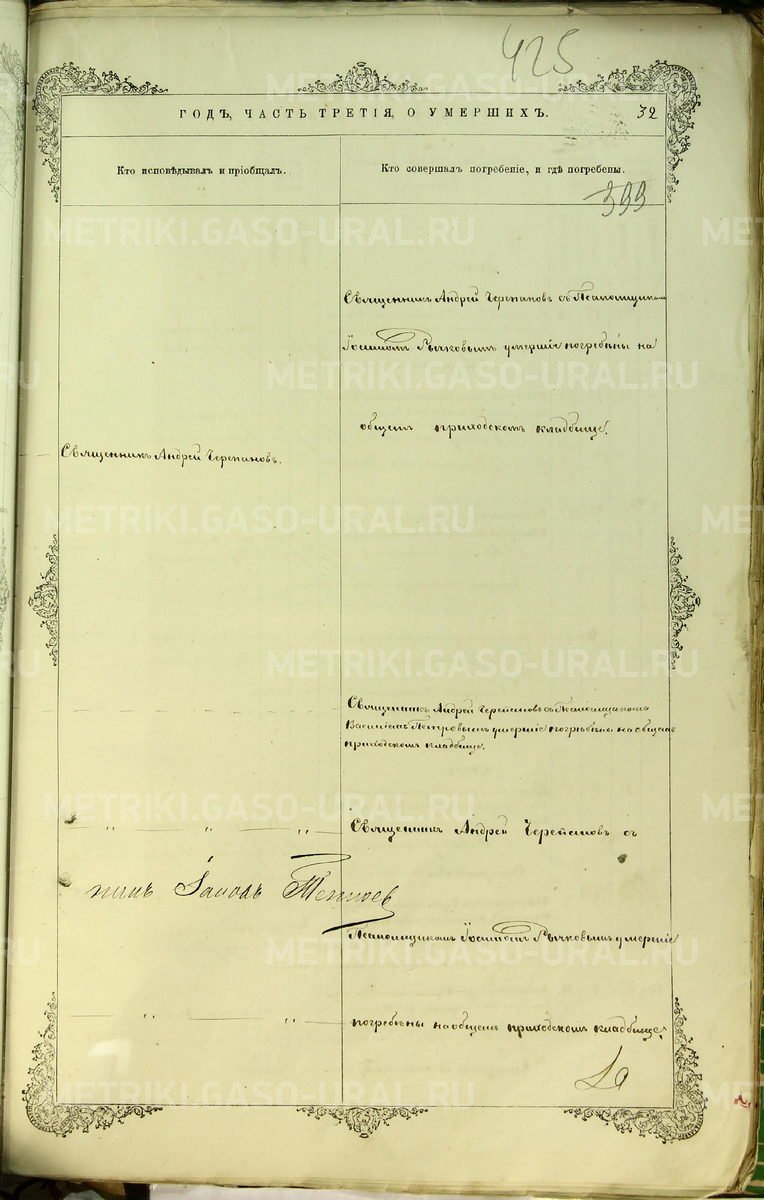 425
ГОДЪ, ЧАСТЬ ТРЕТІЯ, О УМЕРШИХЪ. 32
Кто исповѣдывалъ и пріобщалъ.
Кто совершалъ погребеніе, и гдѣ погребены.
399
Священникъ Андрей Черепановъ съ Псаломщикомъ
Іосифомъ Рычковымъ умершіе погребены на
общемъ приходскомъ кладбище.
Священникъ Андрей Черепановъ.
Священникъ Андрей Черепановъ съ Псаломщикомъ
Василіемъ Петровымъ умершіе погребены на общемъ
приходскомъ кладбище.
Священникъ Андрей Черепановъ съ
Псаломщикомъ Іосифомъ Рычковымъ умершіе
погребены на общемъ приходскомъ кладбище.
METRIKI.GASO-URAL.RU